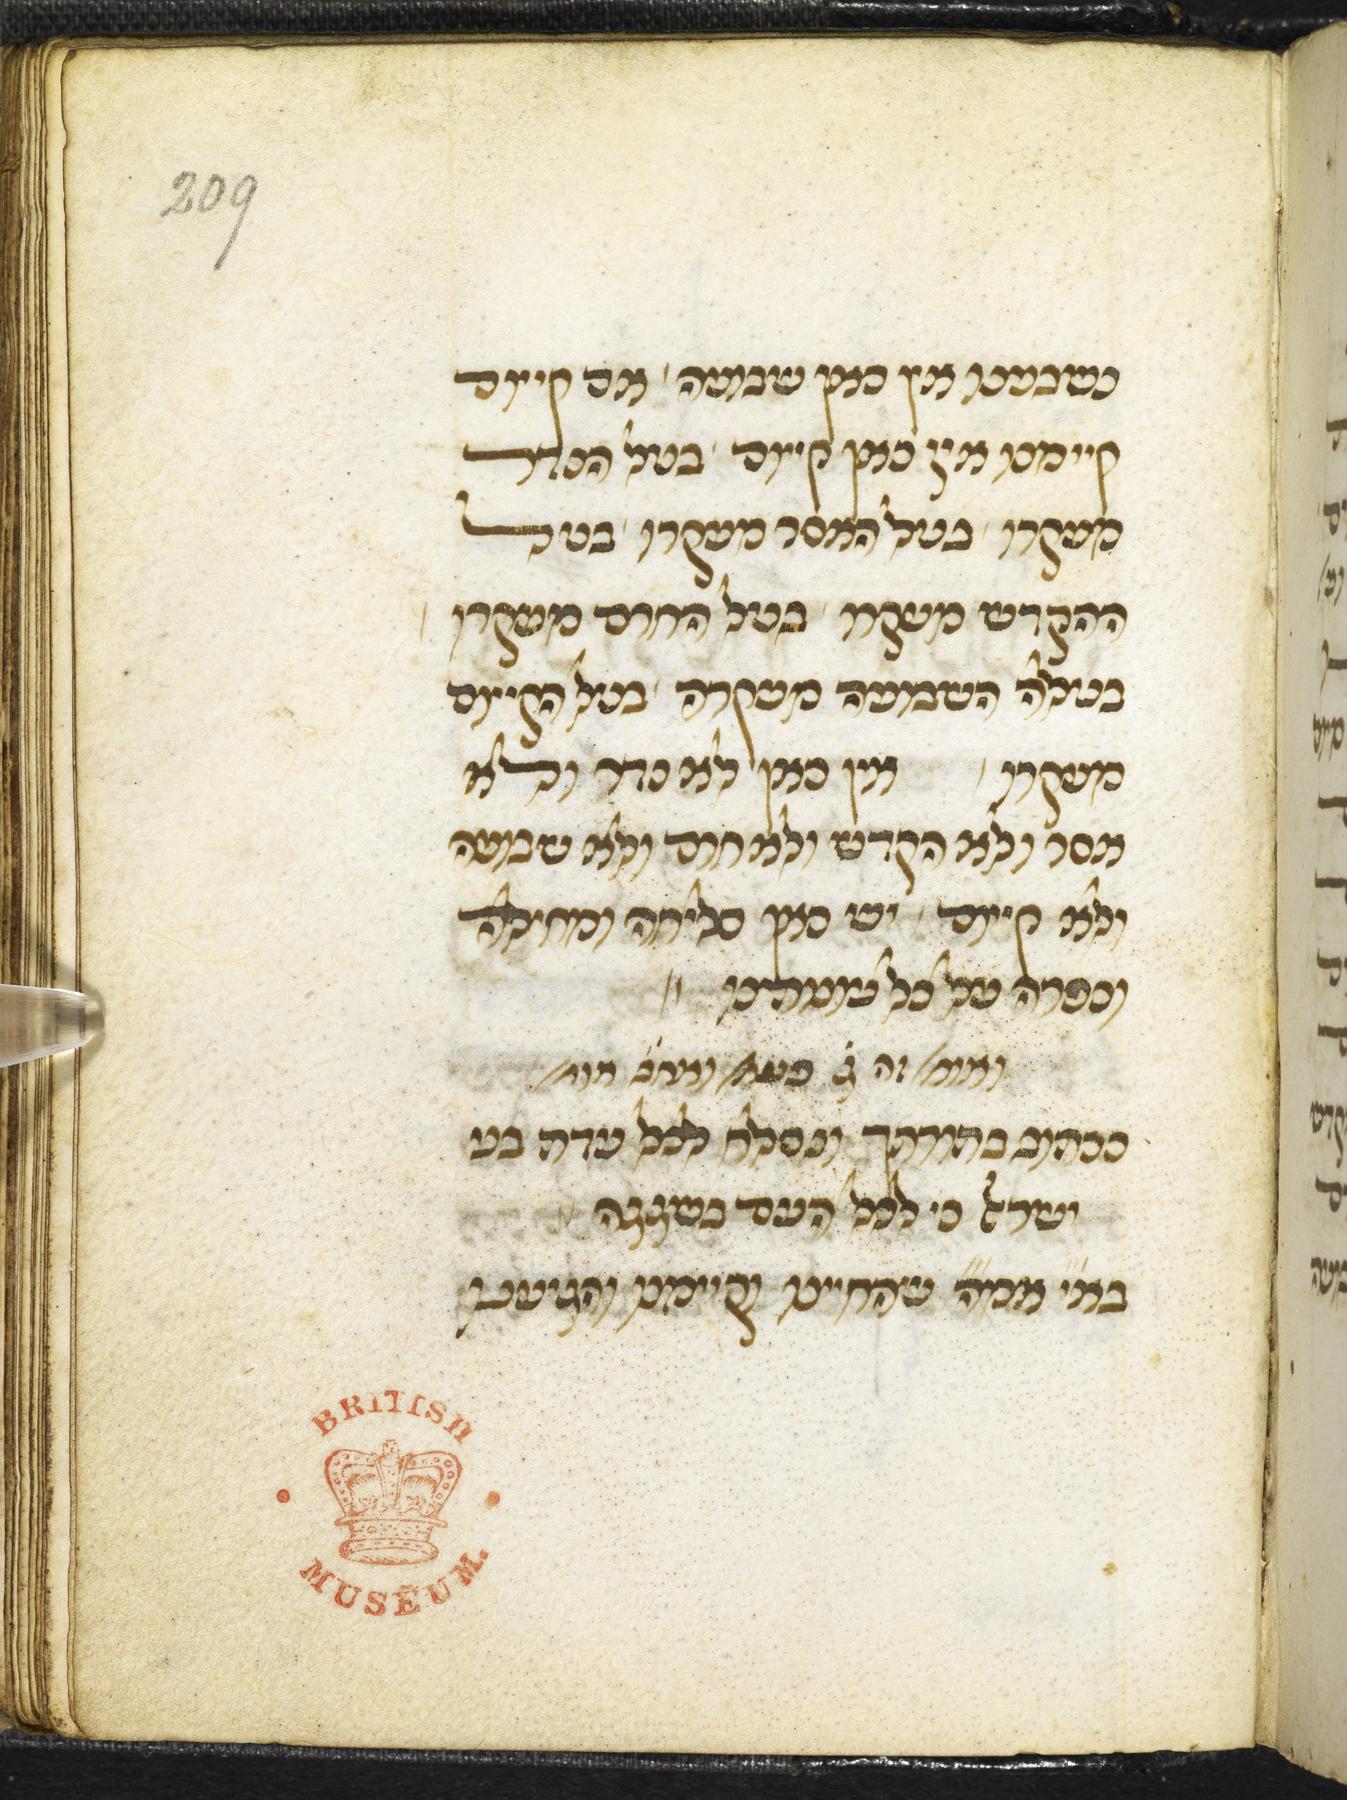 209
נשבענו אין כאן שבועה / אם קיום
קיימנו אין כאן קיום / בטל הנדר
מעקרו / בטל האסר מעקרו / בטל
ההקדש מעקרו / בטל החרם מעקרו /
בטלה השבועה מעקרה / בטל הקיום
מעקרו / אין כאן לא נדר ולא
אסר ולא הקדש ולא חרם ולא שבועה
ולא קיום / יש כאן סליחה ומחילה
וכפרה על כל עונותינו //
זה ג' פעמ'
ככתוב בתורתך ונסלח לכל עדת בני
ישראל כי לכל העם בשגגה //
בא"י אמ"ה שהחיינו וקיימנו והגיענו
BRITISH
MUSEUM.